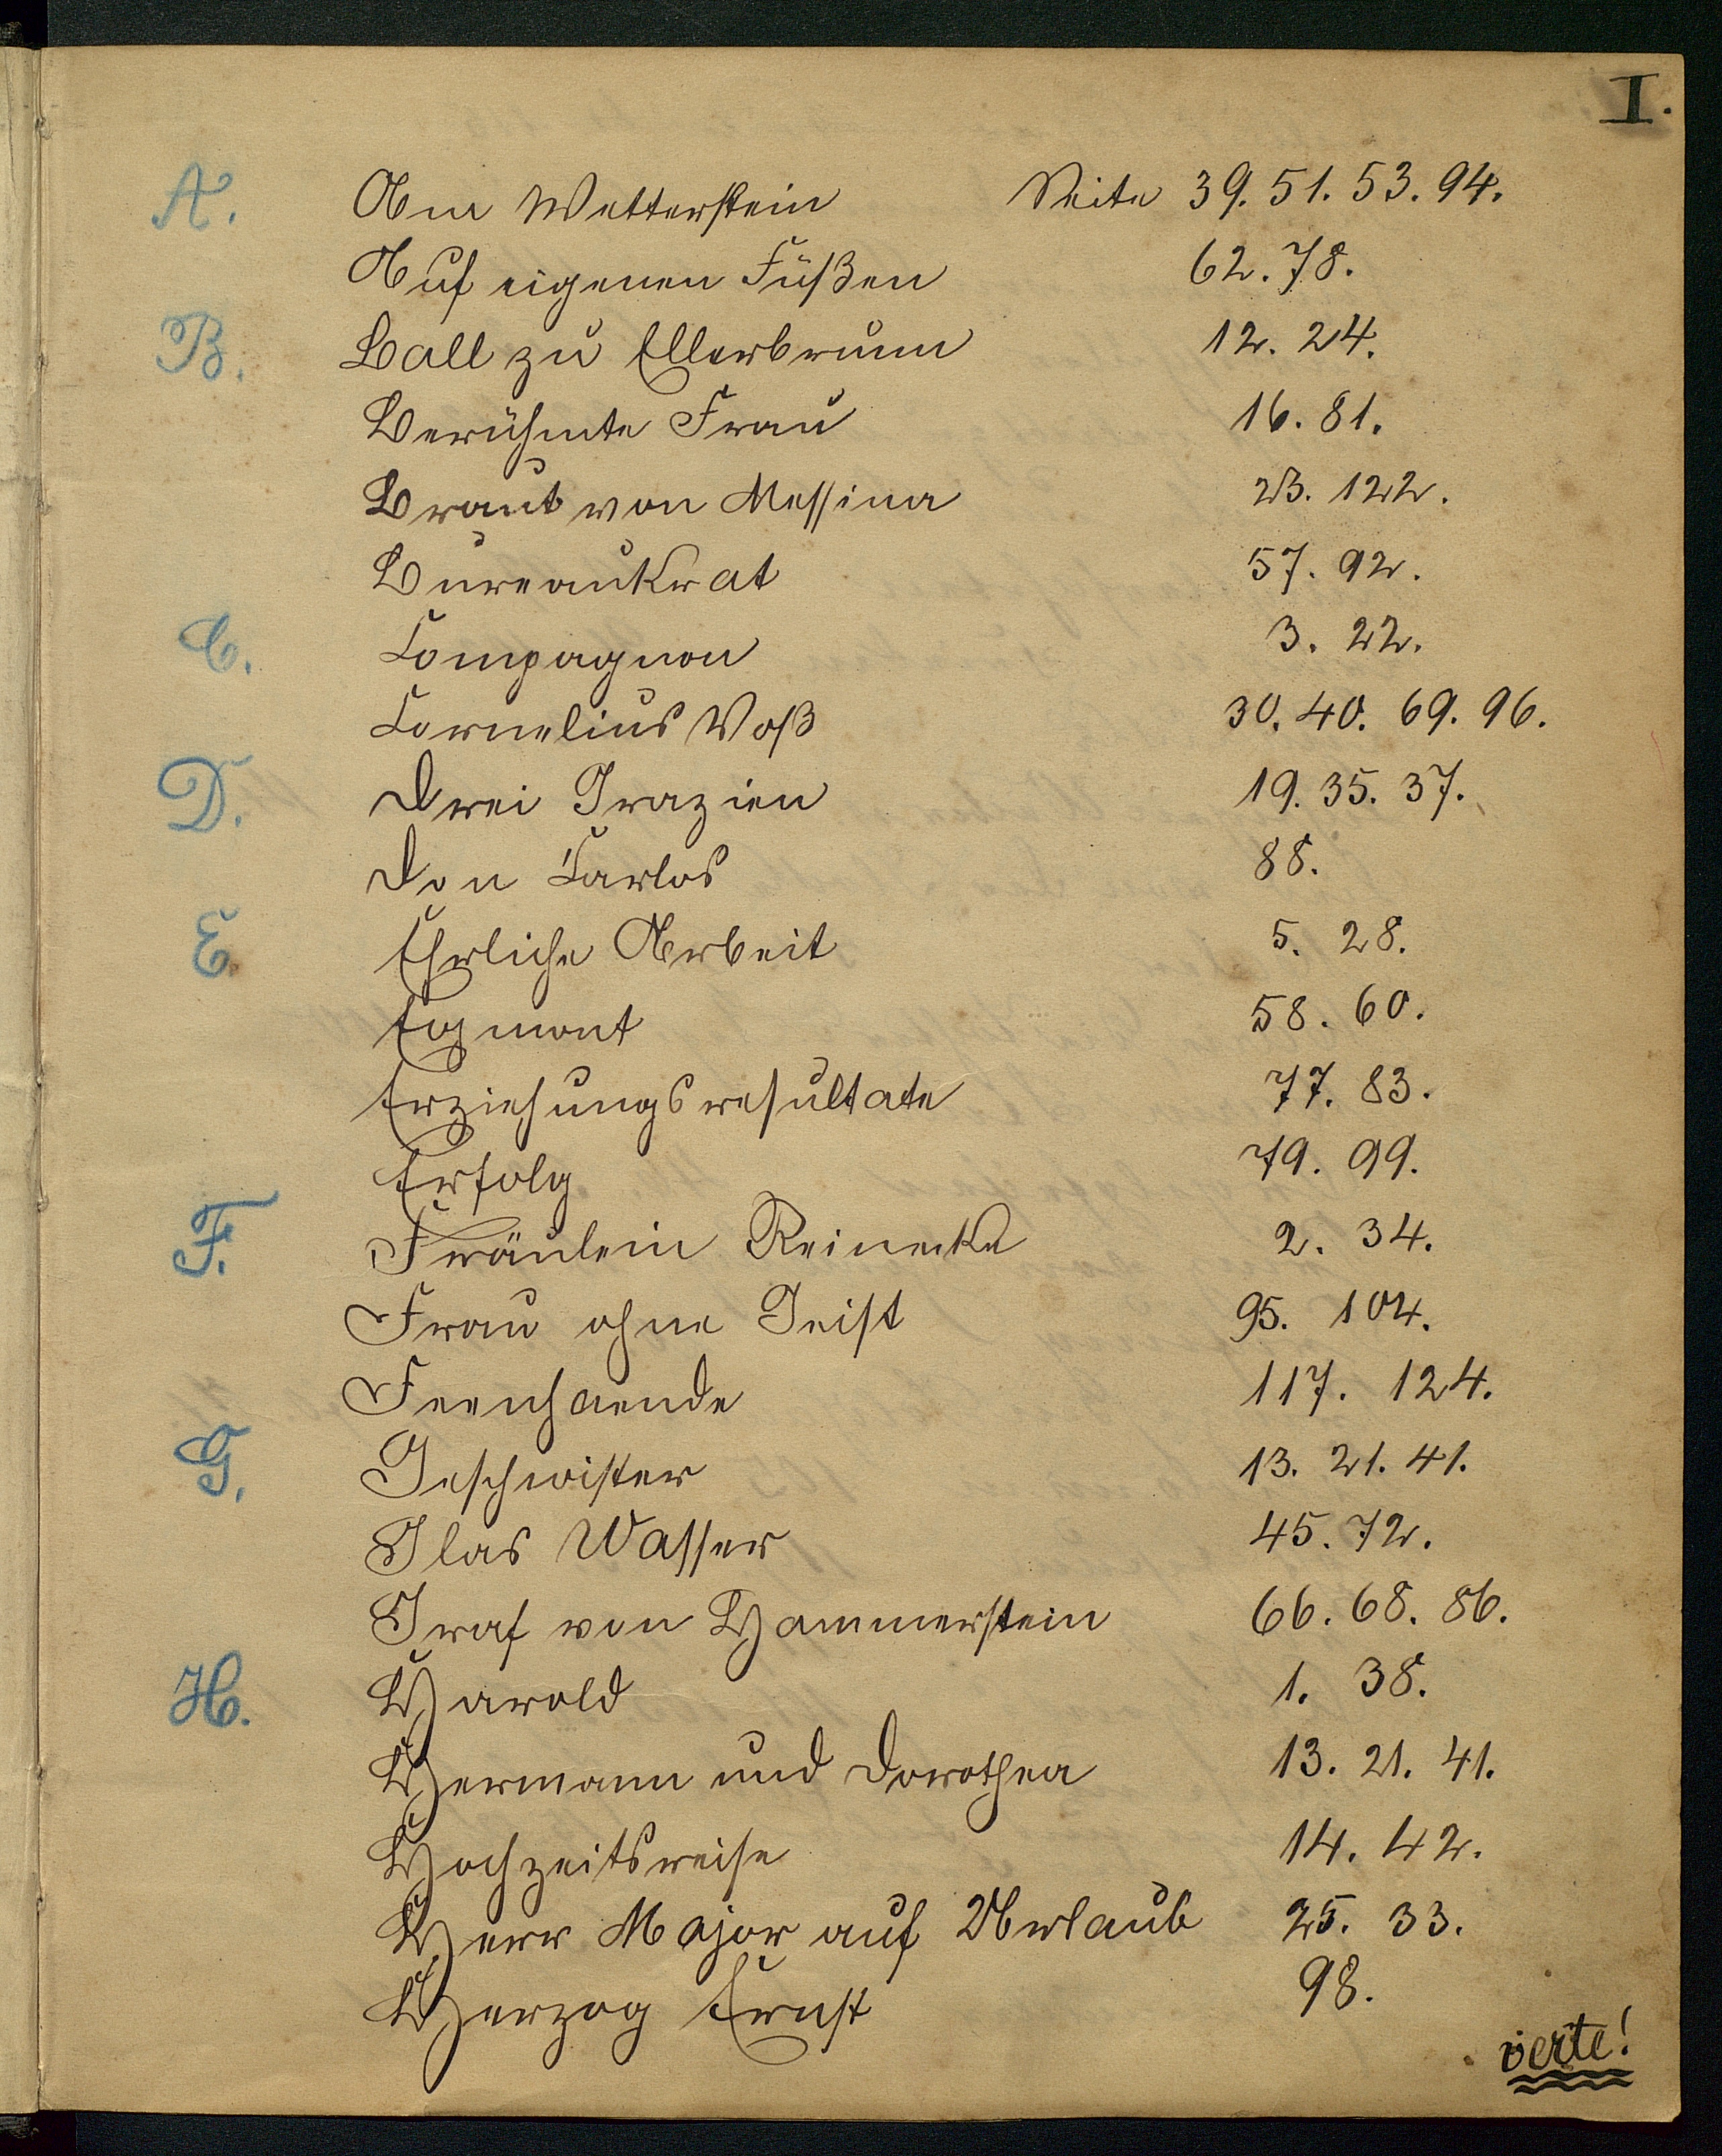 I.
A. Am Wetterstein Seite 39. 51. 53. 94.
Auf eigenen Füßen 62. 78.
B. Ball zu Ellerbrunn 12. 24.
Berühmte Frau 16. 81.
Braut von Messina 23. 122.
Bureaukrat 57. 92.
C. Compagnon 3. 22.
Cornelius Voß 30. 40. 69. 96.
D. Drei Grazien 19. 35. 37.
Don Carlos 88.
E. Ehrliche Arbeit 5. 28.
Egmont 58. 60.
Erziehungsresultate 77. 83.
Erfolg 79. 99.
F. Fräulein Reinecke 2. 34.
Frau ohne Geist 95. 104.
Feenhaende 117. 124.
G. Geschwister 13. 21. 41.
Glas Wasser 45. 72.
Graf von Hammerstein 66. 68. 86.
H. Harold 1. 38.
Hermann und Dorothea 13. 21. 41.
Hochzeitsreise 14. 42.
Herr Major auf Urlaub 25. 33.
Herzog Ernst 98.
verte!